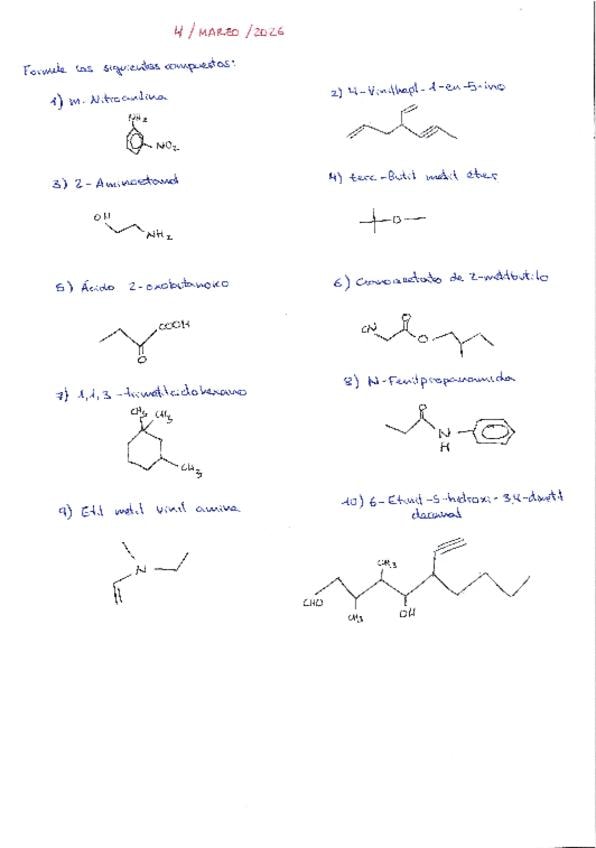 4/MARZO/2026
Formule los siguientes compuestos:
1) m. Nitroanilina
NH2
NO2
2) 4-Vinilhept-1-en-5-ino
3) 2-Aminoetanol
OH
NH2
4) terc-Butil metil éter
O
5) Ácido 2-oxobutanoico
COOH
O
6) Cianoacetato de 2-metilbutilo
CN
O
O
7) 1,1,3-trimetilciclohexano
CH3
CH3
CH3
8) N-Fenilpropanamida
O
N
H
9) Etil metil vinil amina
N
10) 6-Etinil-5-hidroxi-3,4-dimetil
decanal
CH3
CHO
CH3
OH